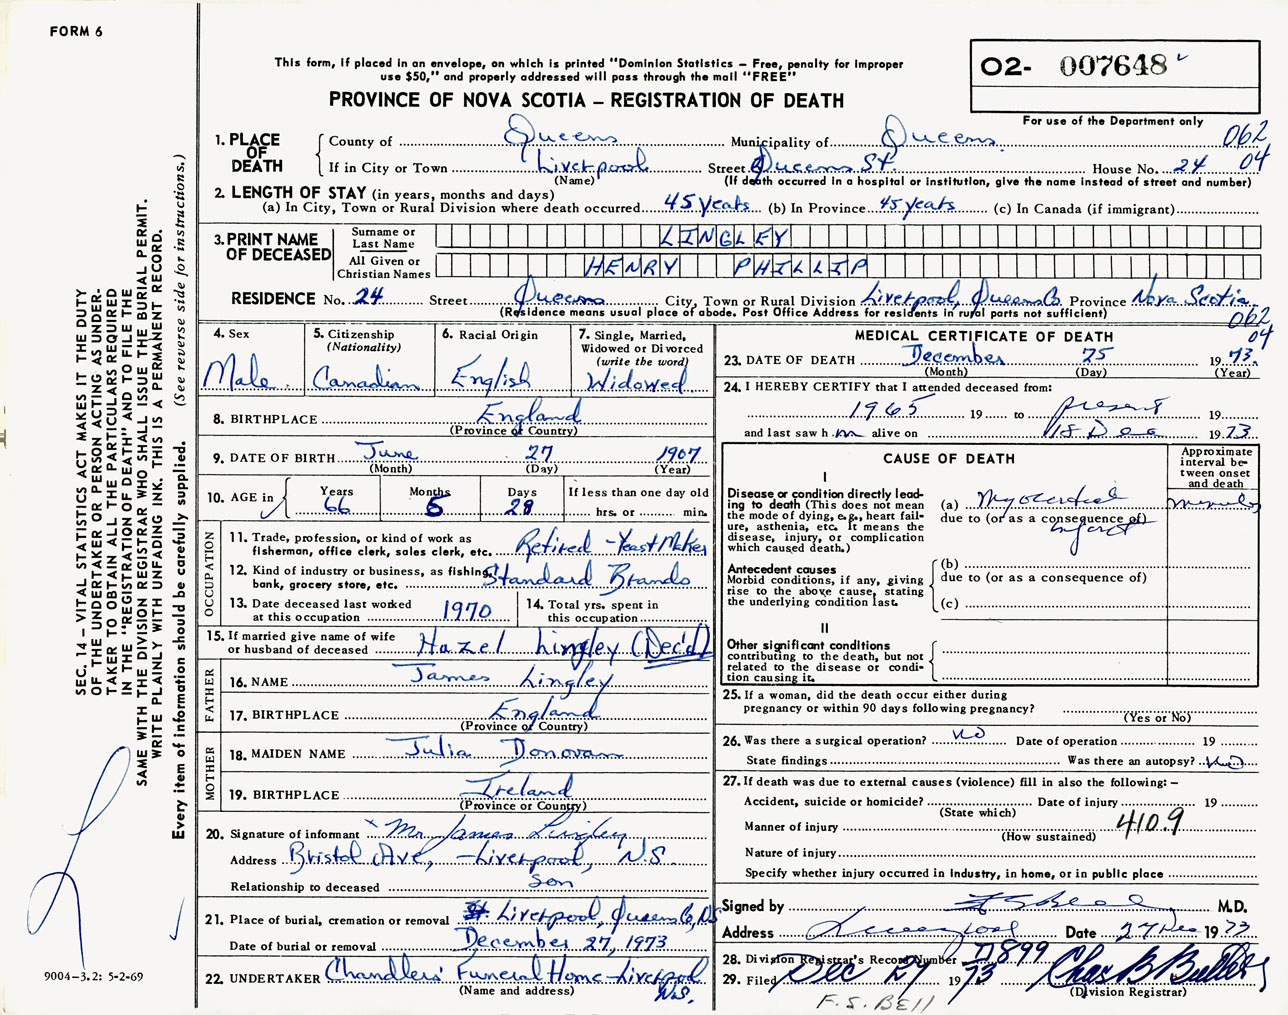 FORM 6
This form, if placed in an envelope, on which is printed "Dominion Statistics – Free, penalty for improper
use $50," and properly addressed will pass through the mail "FREE"
PROVINCE OF NOVA SCOTIA – REGISTRATION OF DEATH
02- 007648
For use of the Department only
062
04
1. PLACE OF DEATH
County of Queens Municipality of Queens
If in City or Town Liverpool Street Queens St. House No. 24
(Name) (If death occurred in a hospital or institution, give the name instead of street and number)
2. LENGTH OF STAY (in years, months and days)
(a) In City, Town or Rural Division where death occurred 45 years (b) In Province 45 years (c) In Canada (if immigrant)
3. PRINT NAME OF DECEASED
Surname or Last Name LINGLEY
All Given or Christian Names HENRY PHILLIP
RESIDENCE No. 24 Street Queens City, Town or Rural Division Liverpool, Queens Co. Province Nova Scotia
(Residence means usual place of abode. Post Office Address for residents in rural parts not sufficient)
062
04
4. Sex
Male
5. Citizenship
(Nationality)
Canadian
6. Racial Origin
English
7. Single, Married,
Widowed or Divorced
(write the word)
Widowed
8. BIRTHPLACE England
(Province or Country)
9. DATE OF BIRTH June 27 1907
(Month) (Day) (Year)
10. AGE in
Years Months Days If less than one day old
66 5 28 hrs. or min.
OCCUPATION
11. Trade, profession, or kind of work as
fisherman, office clerk, sales clerk, etc. Retired - Yeast Maker
12. Kind of industry or business, as fishing,
bank, grocery store, etc. Standard Brands
13. Date deceased last worked
at this occupation 1970
14. Total yrs. spent in
this occupation
15. If married give name of wife
or husband of deceased Hazel Lingley (Dec'd)
FATHER
16. NAME James Lingley
17. BIRTHPLACE England
(Province or Country)
MOTHER
18. MAIDEN NAME Julia Donovan
19. BIRTHPLACE Ireland
(Province or Country)
20. Signature of informant x Mr. James Lingley
Address Bristol Ave, - Liverpool, N.S.
Relationship to deceased Son
21. Place of burial, cremation or removal Liverpool, Queens Co, N.S.
Date of burial or removal December 27, 1973
22. UNDERTAKER Chandlers' Funeral Home - Liverpool
N.S.
(Name and address)
MEDICAL CERTIFICATE OF DEATH
23. DATE OF DEATH December 25 1973.
(Month) (Day) (Year)
24. I HEREBY CERTIFY that I attended deceased from:
1965 19 to present 19
and last saw h im alive on 18 Dec 1973
CAUSE OF DEATH
Approximate
interval be-
tween onset
and death
I
Disease or condition directly lead-
ing to death (This does not mean
the mode of dying, e.g., heart fail-
ure, asthenia, etc. It means the
disease, injury, or complication
which caused death.)
(a) Myocardial
due to (or as a consequence of)
infarct
minutes
Antecedent causes
Morbid conditions, if any, giving
rise to the above cause, stating
the underlying condition last.
(b)
due to (or as a consequence of)
(c)
II
Other significant conditions
contributing to the death, but not
related to the disease or condi-
tion causing it.
25. If a woman, did the death occur either during
pregnancy or within 90 days following pregnancy?
(Yes or No)
26. Was there a surgical operation? No Date of operation 19
State findings Was there an autopsy? No
27. If death was due to external causes (violence) fill in also the following: –
Accident, suicide or homicide? Date of injury 19
(State which)
Manner of injury 410.9
(How sustained)
Nature of injury
Specify whether injury occurred in industry, in home, or in public place
Signed by F S Bell M.D.
Address Liverpool Date 27 Dec 1973
28. Division Registrar's Record Number 899
29. Filed Dec 27 1973
(Division Registrar)
F.S. BELL
SEC. 14 – VITAL STATISTICS ACT MAKES IT THE DUTY
OF THE UNDERTAKER OR PERSON ACTING AS UNDER-
TAKER TO OBTAIN ALL THE PARTICULARS REQUIRED
IN THE "REGISTRATION OF DEATH" AND TO FILE THE
SAME WITH THE DIVISION REGISTRAR WHO SHALL ISSUE THE BURIAL PERMIT.
WRITE PLAINLY WITH UNFADING INK. THIS IS A PERMANENT RECORD.
Every item of information should be carefully supplied. (See reverse side for instructions.)
9004–3.2: 5-2-69